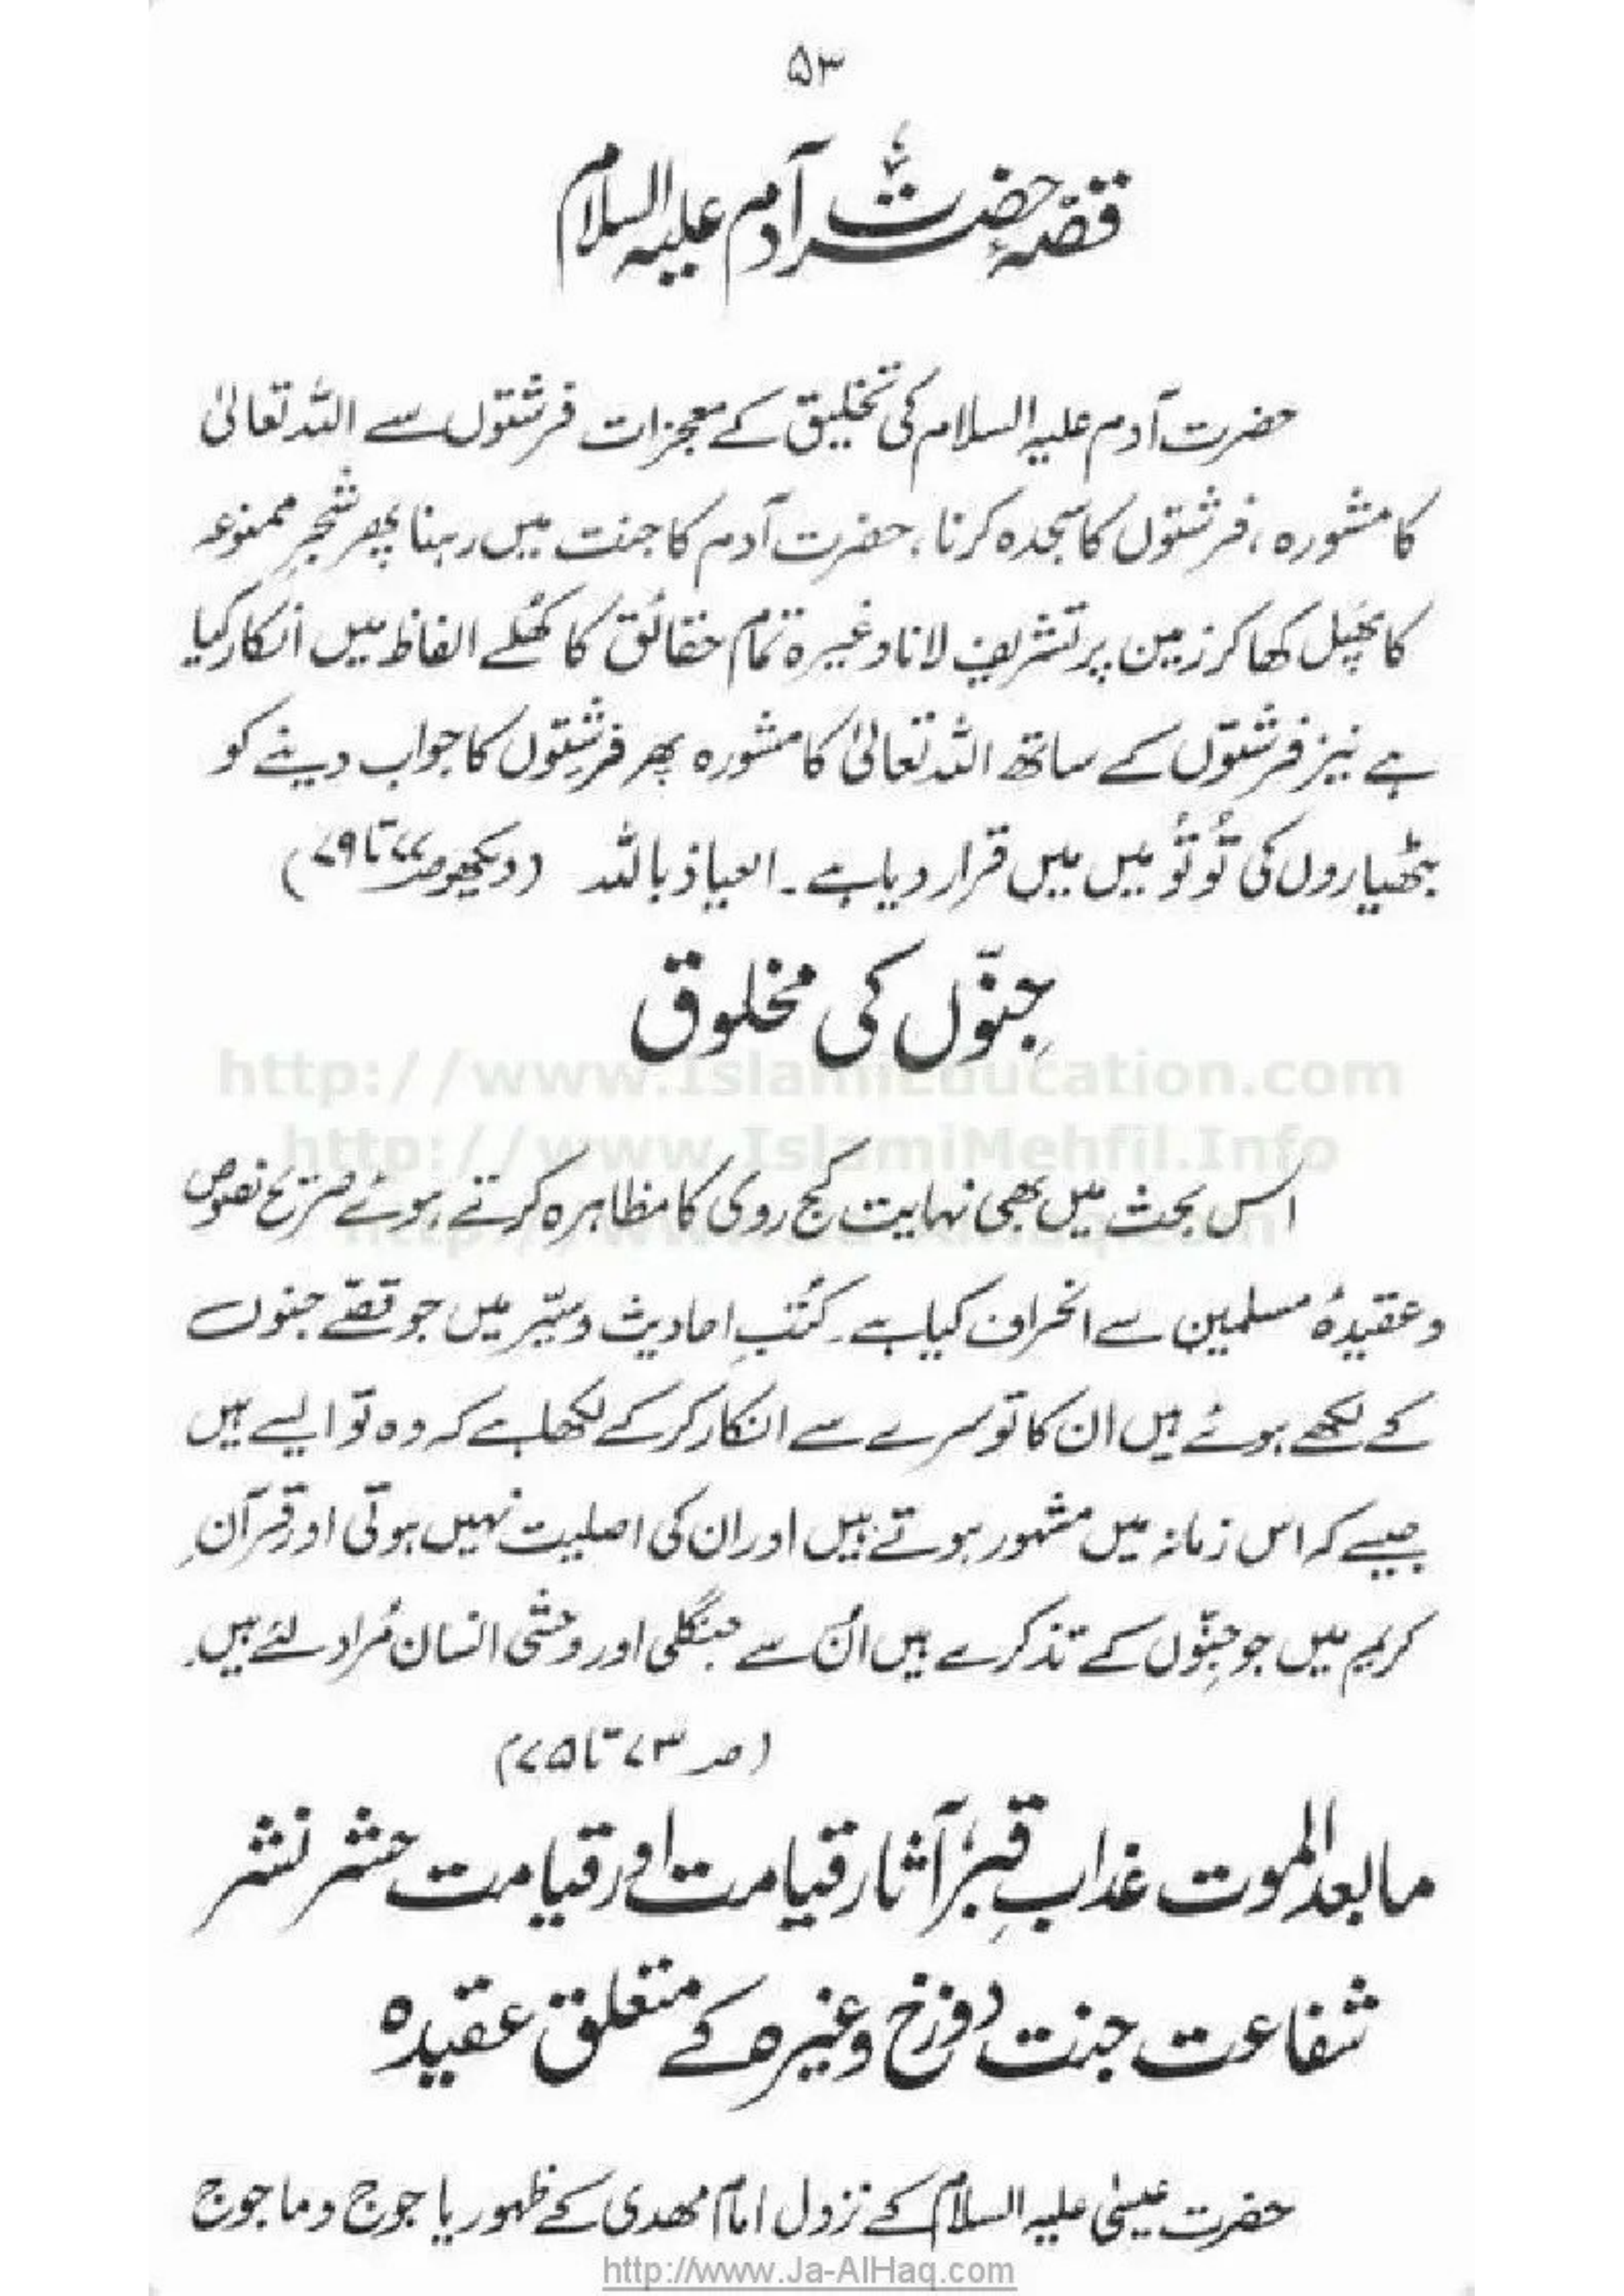 ۵۳
قصۂ حضرت آدم علیہ السلام
حضرت آدم علیہ السلام کی تخلیق کے معجزات فرشتوں سے اللہ تعالیٰ
کا مشورہ ، فرشتوں کا سجدہ کرنا ، حضرت آدم کا جنت میں رہنا پھر شجرِ ممنوعہ
کا پھل کھا کر زمین پر تشریف لانا وغیرہ تمام حقائق کا کھلے الفاظ میں انکار کیا
ہے نیز فرشتوں کے ساتھ اللہ تعالیٰ کا مشورہ پھر فرشتوں کا جواب دینے کو
بٹھیاروں کی تُو تُو میں میں قرار دیا ہے ۔ العیاذ باللہ (دیکھو صـ۷۷ تا ۷۹)
جِنّوں کی مخلوق
http://www.IslamiEducation.com
http://www.IslamiMehfil.Info
اس بحث میں بھی نہایت کج روی کا مظاہرہ کرتے ہوئے صریح نصوص
و عقیدۂ مسلمین سے انحراف کیا ہے ۔ کتبِ احادیث و سِیَر میں جو قصّے جنوں
کے لکھے ہوئے ہیں ان کا تو سرے سے انکار کرکے لکھا ہے کہ وہ تو ایسے ہیں
جیسے کہ اس زمانہ میں مشہور ہوتے ہیں اور ان کی اصلیت نہیں ہوتی اور قرآنِ
کریم میں جو جِنّوں کے تذکرے ہیں اُن سے جنگلی اور وحشی انسان مُراد لئے ہیں ۔
(صـ ۷۳ تا ۷۵)
ما بعد الموت عذابِ قبر، آثار قیامت اور قیامت حشر نشر
شفاعت جنت دوزخ وغیرہ کے متعلق عقیدہ
حضرت عیسیٰ علیہ السلام کے نزول امام مہدی کے ظہور یا جوج و ماجوج
http://www.Ja-AlHaq.com